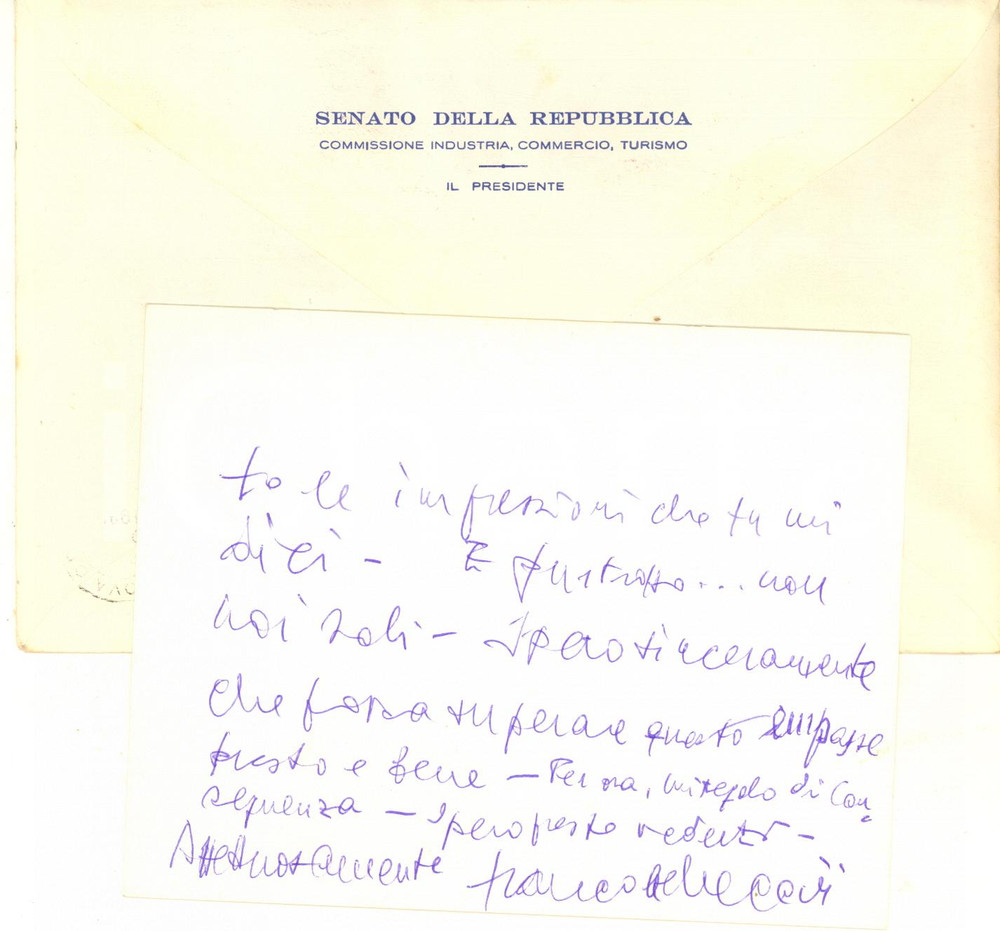 SENATO DELLA REPUBBLICA
COMMISSIONE INDUSTRIA, COMMERCIO, TURISMO
IL PRESIDENTE
to le impressioni che tu mi
dici - E purtroppo... non
noi soli - Spero sinceramente
che possa superare questo impasse
presto e bene - Per ora, mi regolo di con"
seguenza - Spero presto vederti -
Affettuosamente franco